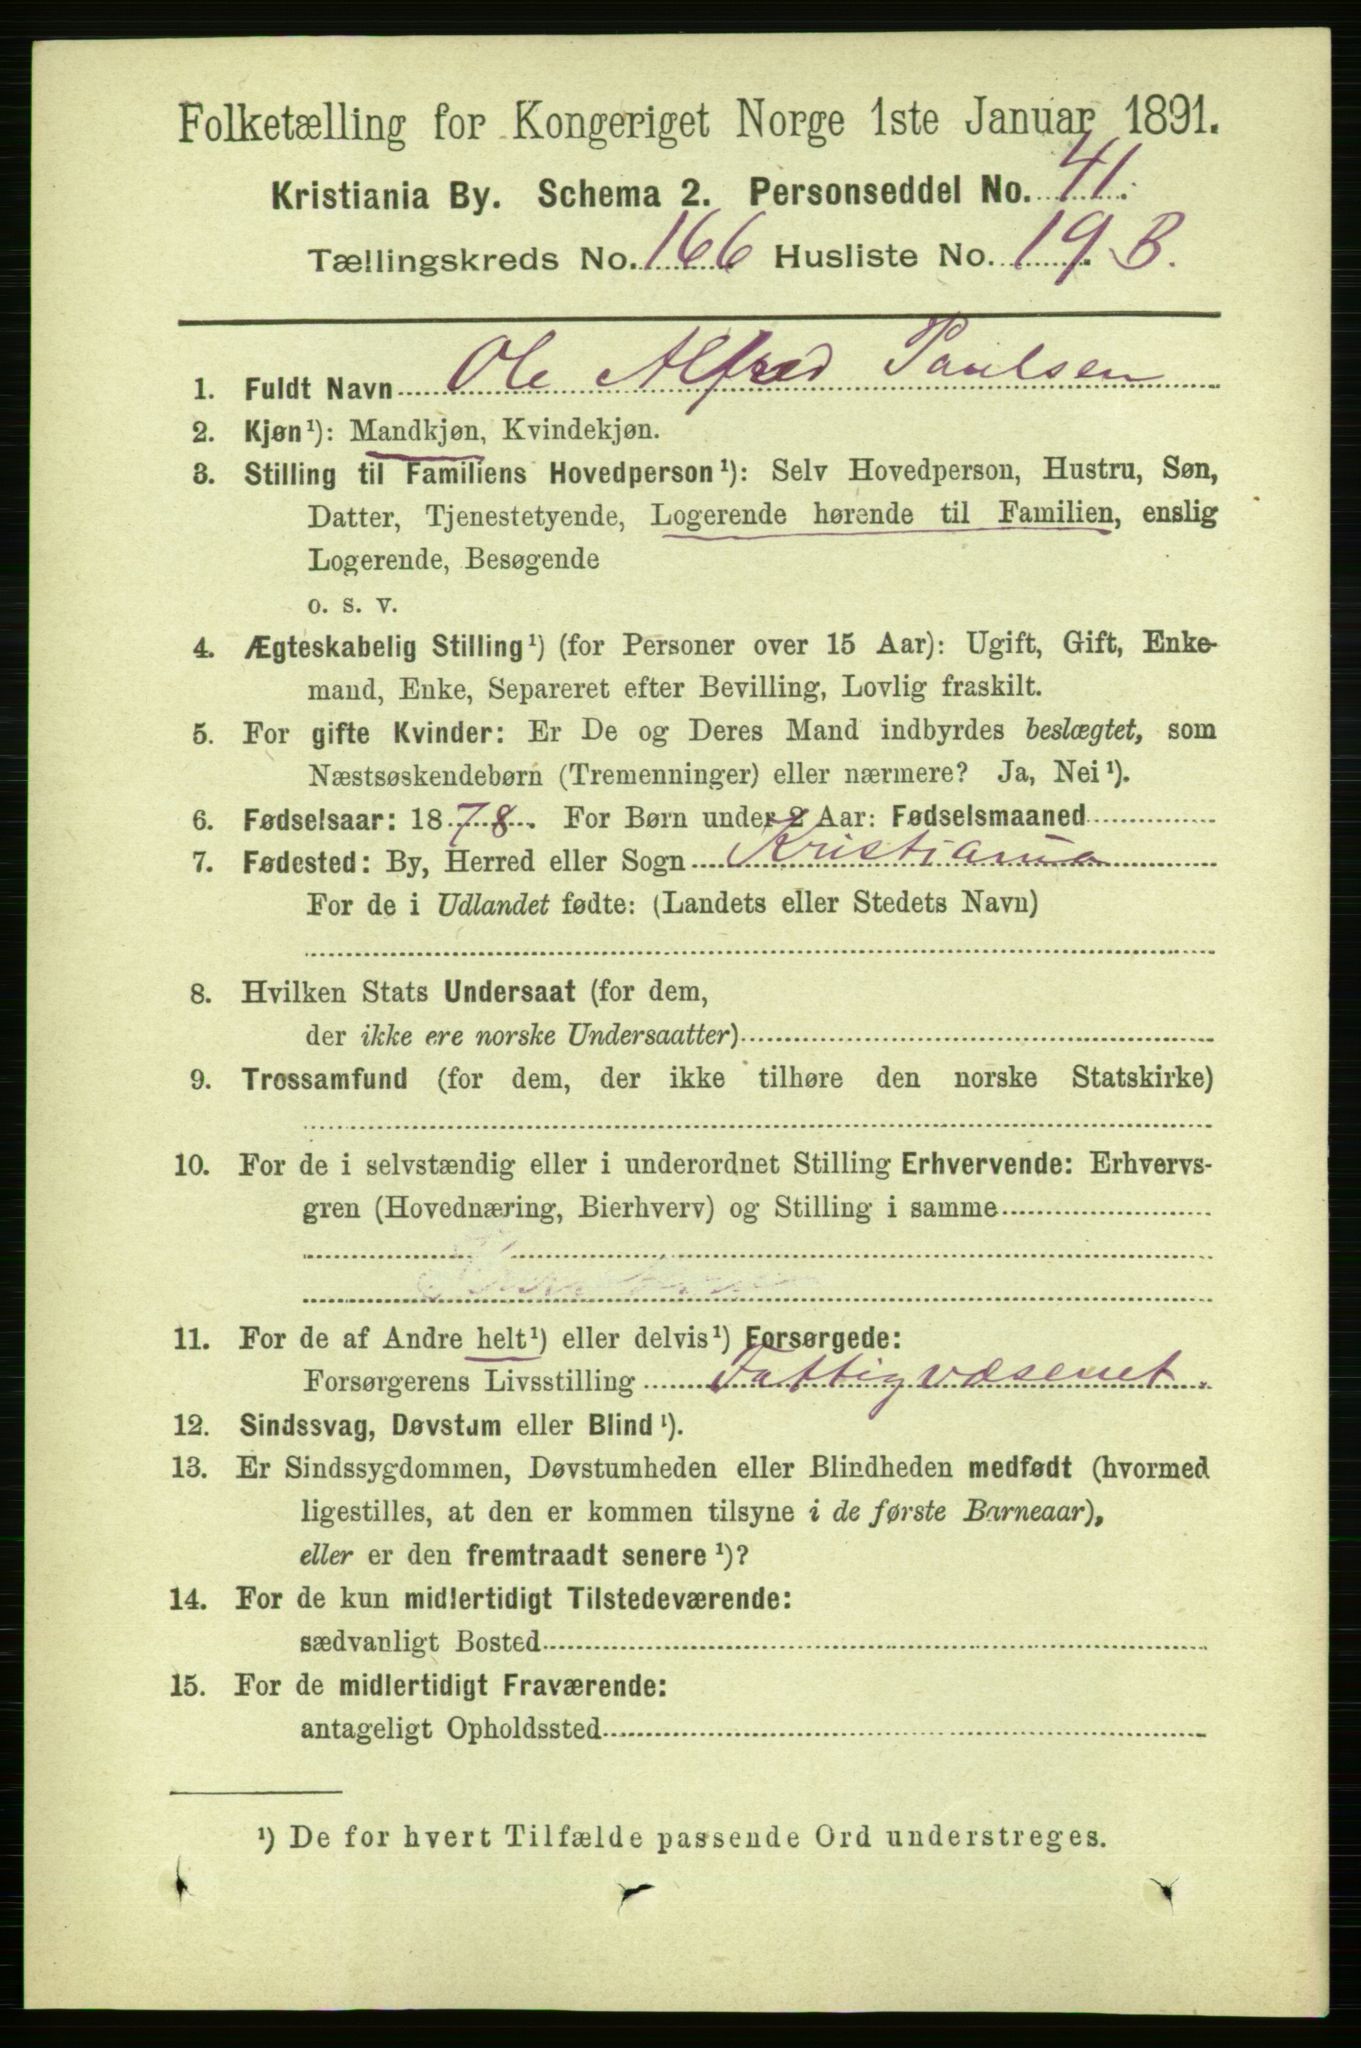 Folketælling for Kongeriget Norge 1ste Januar 1891.
Kristiania By. Schema 2. Personseddel No. 41.
Tællingskreds No. 166 Husliste No. 19 B.
1. Fuldt Navn Ole Alfred Paulsen
2. Kjøn¹): Mandkjøn, Kvindekjøn.
3. Stilling til Familiens Hovedperson¹): Selv Hovedperson, Hustru, Søn,
Datter, Tjenestetyende, Logerende hørende til Familien, enslig
Logerende, Besøgende
o. s. v.
4. Ægteskabelig Stilling¹) (for Personer over 15 Aar): Ugift, Gift, Enke-
mand, Enke, Separeret efter Bevilling, Lovlig fraskilt.
5. For gifte Kvinder: Er De og Deres Mand indbyrdes beslægtet, som
Næstsøskendebørn (Tremenninger) eller nærmere? Ja, Nei¹).
6. Fødselsaar: 1878. For Børn under 2 Aar: Fødselsmaaned
7. Fødested: By, Herred eller Sogn Kristiania
For de i Udlandet fødte: (Landets eller Stedets Navn)
8. Hvilken Stats Undersaat (for dem,
der ikke ere norske Undersaatter)
9. Trossamfund (for dem, der ikke tilhøre den norske Statskirke)
10. For de i selvstændig eller i underordnet Stilling Erhvervende: Erhvervs-
gren (Hovednæring, Bierhverv) og Stilling i samme
11. For de af Andre helt¹) eller delvis¹) Forsørgede:
Forsørgerens Livsstilling Fattigvæsenet.
12. Sindssvag, Døvstum eller Blind¹).
13. Er Sindssygdommen, Døvstumheden eller Blindheden medfødt (hvormed
ligestilles, at den er kommen tilsyne i de første Barneaar),
eller er den fremtraadt senere¹)?
14. For de kun midlertidigt Tilstedeværende:
sædvanligt Bosted
15. For de midlertidigt Fraværende:
antageligt Opholdssted
¹) De for hvert Tilfælde passende Ord understreges.